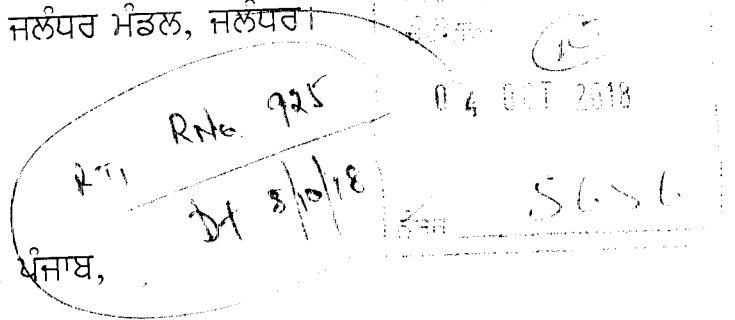 ਜਲੰਧਰ ਮੰਡਲ, ਜਲੰਧਰ।
04 OCT 2018
RTI
RNo. 925
Dt 8/10/18
ਪੰਜਾਬ,